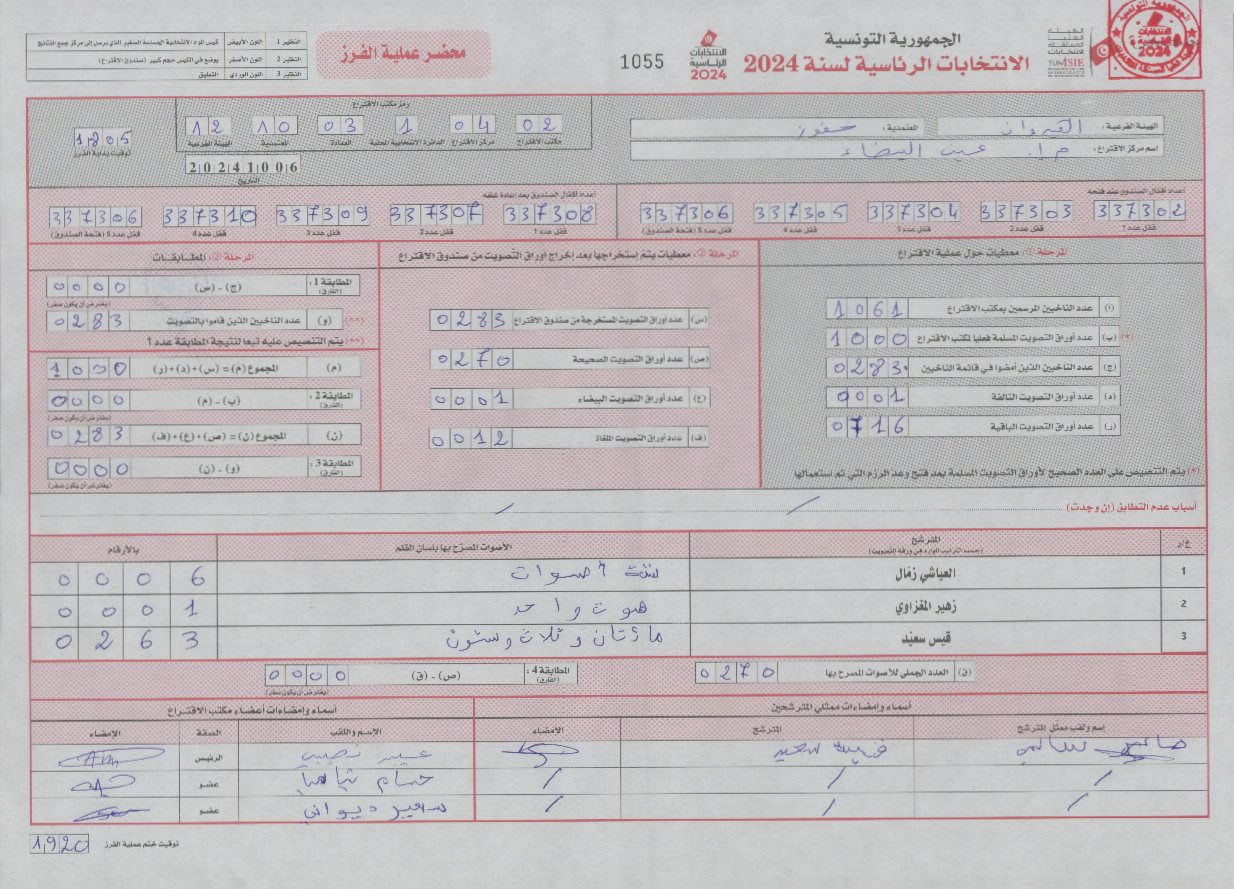 الجمهورية التونسية
الانتخابات الرئاسية لسنة 2024
الانتخابات الرئاسية 2024
1055
محضر عملية الفرز
النظير 1 اللون الأبيض كيس المواد الانتخابية الحساسة الصغير الذي يرسل إلى مركز جمع النتائج
النظير 2 اللون الأصفر يوضع في الكيس حجم كبير (صندوق الاقتراع)
النظير 3 اللون الوردي التعليق
الهيئة الفرعية: القيروان المعتمدية: حفوز
اسم مركز الاقتراع: م.إ. عين البيضاء
رمز مكتب الاقتراع
02 04 1 03 10 12
مكتب الاقتراع مركز الاقتراع الدائرة الانتخابية المحلية العمادة المعتمدية الهيئة الفرعية
1805
توقيت بداية الفرز
20241006
التاريخ
أعداد أقفال الصندوق عند فتحه
337302 337303 337304 337305 337306
قفل عدد 1 قفل عدد 2 قفل عدد 3 قفل عدد 4 قفل عدد 5 (فتحة الصندوق)
أعداد أقفال الصندوق بعد إعادة غلقه
337308 337307 337309 337310 337306
قفل عدد 1 قفل عدد 2 قفل عدد 3 قفل عدد 4 قفل عدد 5 (فتحة الصندوق)
المرحلة 1: معطيات حول عملية الاقتراع
(أ) عدد الناخبين المرسمين بمكتب الاقتراع 1061
(*) (ب) عدد أوراق التصويت المسلمة فعليا لمكتب الاقتراع 1000
(ج) عدد الناخبين الذين أمضوا في قائمة الناخبين 0283
(د) عدد أوراق التصويت التالفة 0001
(ر) عدد أوراق التصويت الباقية 0716
(*) يتم التنصيص على العدد الصحيح لأوراق التصويت المسلمة بعد فتح وعد الرزم التي تم استعمالها
المرحلة 2: معطيات يتم استخراجها بعد إخراج أوراق التصويت من صندوق الاقتراع
(س) عدد أوراق التصويت المستخرجة من صندوق الاقتراع 0283
(ص) عدد أوراق التصويت الصحيحة 0270
(ع) عدد أوراق التصويت البيضاء 0001
(ف) عدد أوراق التصويت الملغاة 0012
المرحلة 3: المطابقات
المطابقة 1: (الفارق) (ج) - (س) 0000
(يفترض أن يكون صفر)
(**) (و) عدد الناخبين الذين قاموا بالتصويت 0283
(**) يتم التنصيص عليه تبعا لنتيجة المطابقة عدد 1
(م) المجموع (م) = (س) + (د) + (ر) 1000
المطابقة 2: (الفارق) (ب) - (م) 0000
(يفترض أن يكون صفر)
(ن) المجموع (ن) = (ص) + (ع) + (ف) 0283
المطابقة 3: (الفارق) (و) - (ن) 0000
(يفترض أن يكون صفر)
أسباب عدم التطابق (إن وجدت) / /
ع/ر المترشح الأصوات المصرح بها بلسان القلم بالأرقام
(حسب الترتيب الوارد في ورقة التصويت)
1 العياشي زمّال ستة أصوات 0006
2 زهير المغزاوي صوت واحد 0001
3 قيس سعيّد مائتان وثلاث وستون 0263
(ق) العدد الجملي للأصوات المصرح بها 0270
المطابقة 4: (الفارق) (ص) - (ق) 0000
(يفترض أن يكون صفر)
أسماء وإمضاءات ممثلي المترشحين
اسم ولقب ممثل المترشح المترشح الامضاء
سالمي قيس سعيد
/ / /
/ / /
أسماء وإمضاءات أعضاء مكتب الاقتراع
الإسم واللقب الصفة الإمضاء
عبير نصيبي الرئيس
حسام عضو
سعير ديواني عضو
1920
توقيت ختم عملية الفرز